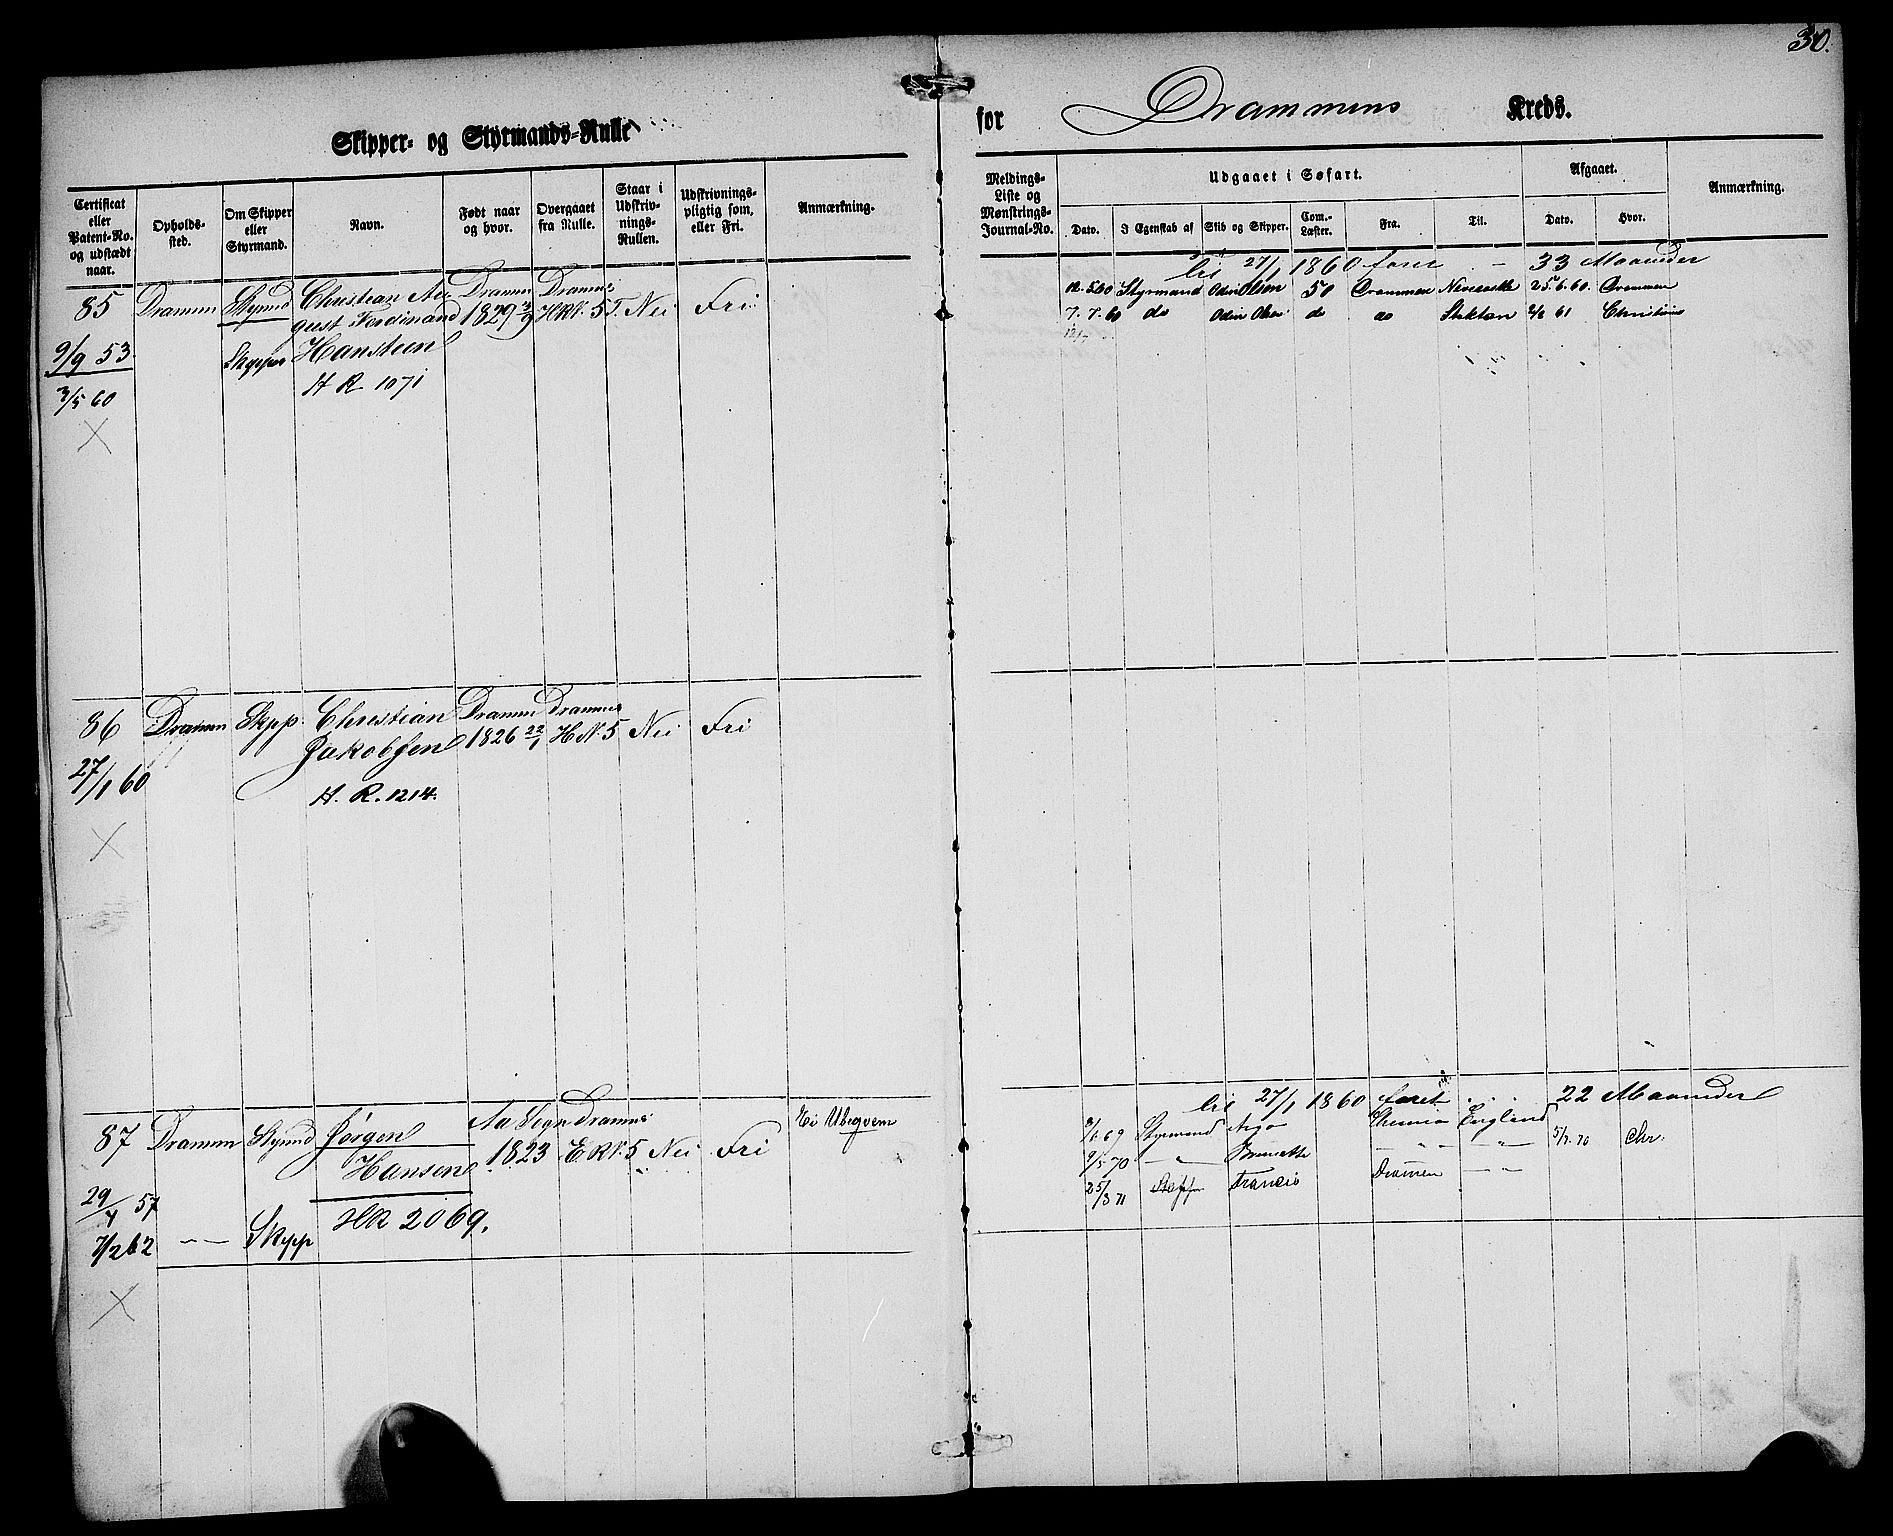 30.
Skipper- og Styrmands-Rulle
for Drammens Kreds.
Certificat eller Patent-No. og udstædt naar.
Opholds-sted.
Om Skipper eller Styrmand.
Navn.
Født naar og hvor.
Overgaaet fra Rulle.
Staar i Udskriv-nings-Rullen.
Udskrivnings-pligtig som, eller Fri.
Anmærkning.
Meldings-Liste og Mønstrings-Journal-No.
Udgaaet i Søfart.
Dato.
I Egenskab af
Skib og Skipper.
Com.-Læster.
Fra.
Til.
Afgaaet.
Dato.
Hvor.
Anmærkning.
85 Dramm Stymd Christian Au Dramm Dramns
gust Ferdinand 1829 3/9 H R N. 5 Nei Fri
9/9 53 Skipper Hansteen
3/5 60 H R 1071
til 27/1 1860 faret - 33 Maaneder
12.5.60 Styrmand Odin Olsen 50 Drammen 25.6.60. Drammen
7.7.60 do Odin Olsen do do 61 Christiania
86 Dramm Skpp. Christian Dramm Dramns
Jakobsen 1826 22/1 H N. 5 Nei Fri
27/1 60
H. R. 1214.
87 Dramm Stymd Jørgen Aa Sogn Dramns Ei Ubeqvem
Hansen 1823 E R N. 5 Nei Fri
29/4 57
7/2 62 -"- Skpp HR 2069.
til 27/1 1860 faret 22 Maaneder
69 Styrmand Argo England
9/5 70 -"- -"- -"- 5/7 70 Chr.
25/3 71 Francis Drammen -"-